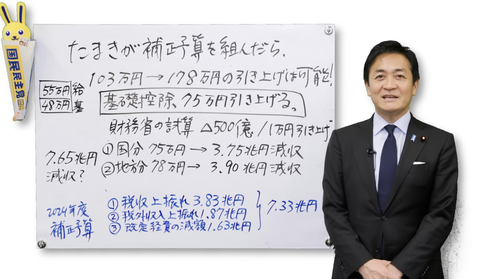 国民民主党
たまきが補正予算を組んだら、
103万円→178万円の引き上げは可能!
55万円 給
48万円 基
基礎控除75万円引き上げる。
財務省の試算 △500億/1万円引き上げ
①国分 75万円→3.75兆円減収
②地方分 78万円→3.90兆円減収
7.65兆円
減収?
2024年度
補正予算
①税収上振れ 3.83兆円
②税外収入上振れ1.87兆円
③既定経費の減額1.63兆円
7.33兆円